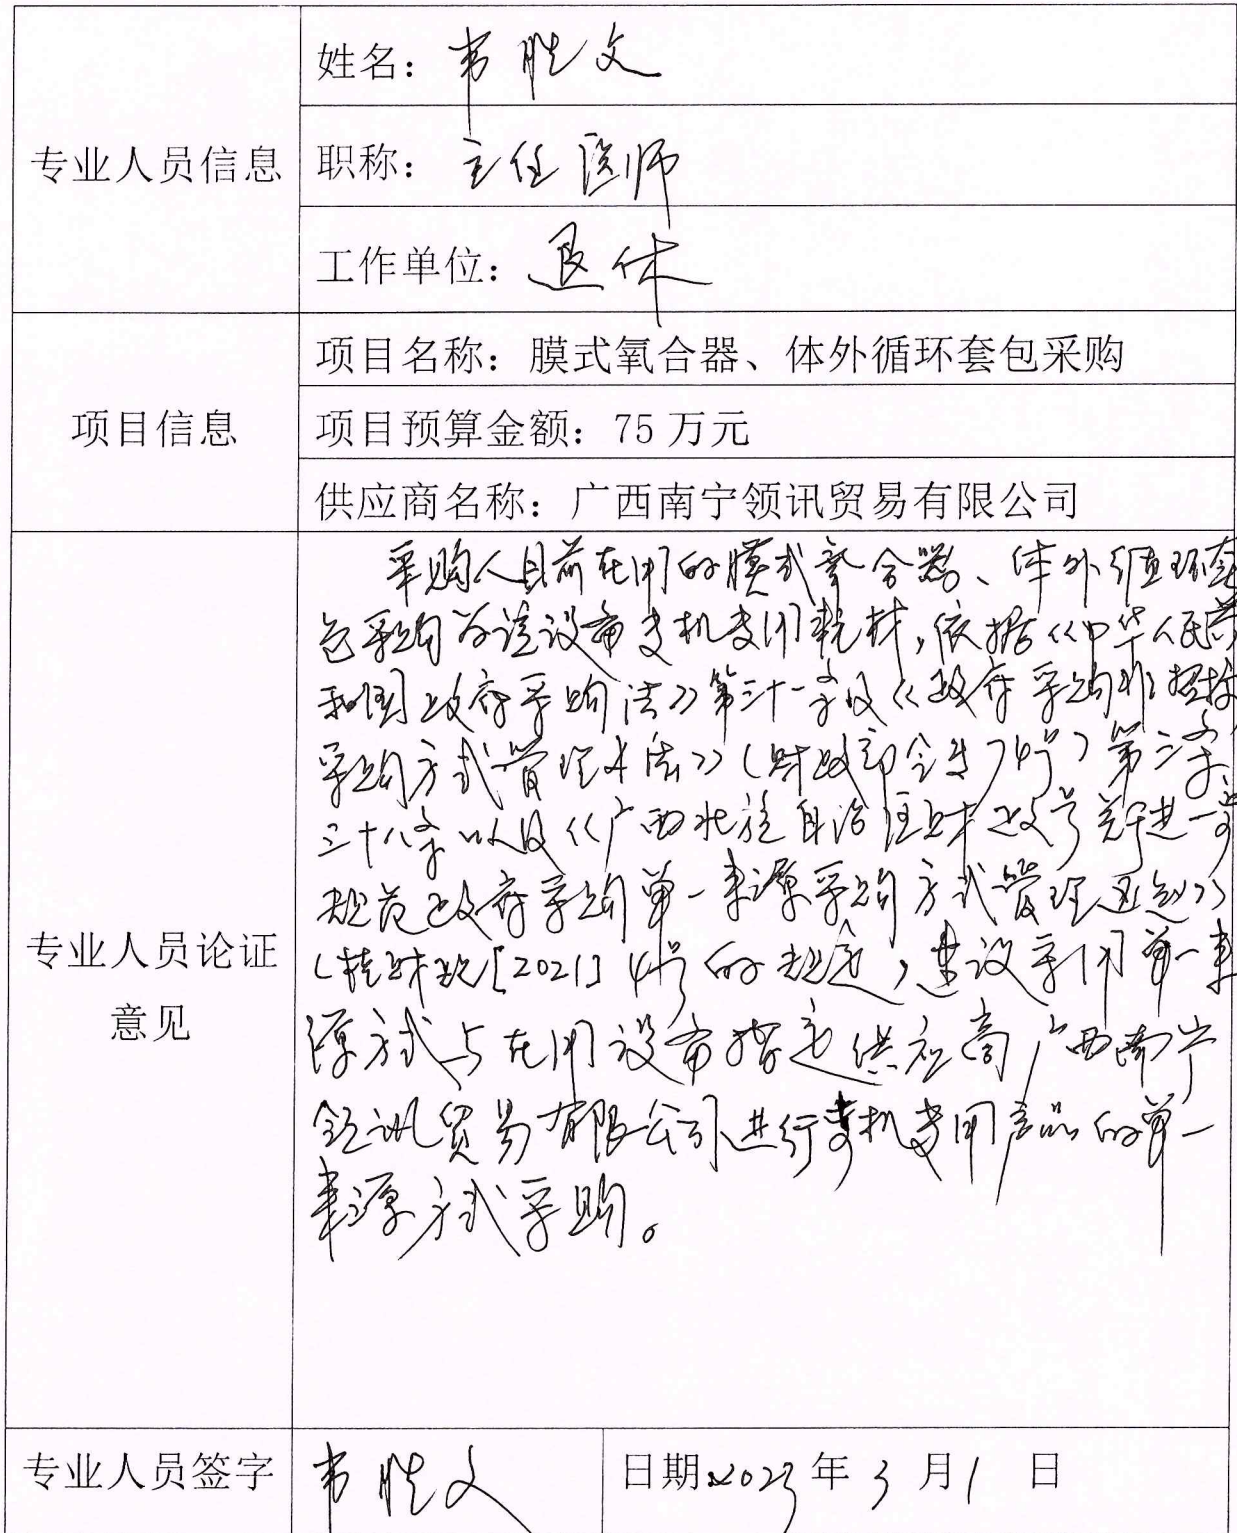 姓名：韦胜文
专业人员信息
职称：主任医师
工作单位：退休
项目名称：膜式氧合器、体外循环套包采购
项目信息
项目预算金额：75万元
供应商名称：广西南宁领讯贸易有限公司
采购人目前在用的膜式氧合器、体外循环套
包采购为该设备专机专用耗材，依据《中华人民共
和国政府采购法》第三十一条及《政府采购非招标
采购方式管理办法》（财政部令第74号）第三条、
三十八条以及《广西壮族自治区财政厅关于进一步
规范政府采购单一来源采购方式管理通知》
（桂财采[2021]4号的规定，建议采用单一来
源方式与在用设备指定供应商广西南宁
领讯贸易有限公司进行专机专用产品的单一
来源方式采购。
专业人员论证
意见
专业人员签字 韦胜文 日期2023年3月1日